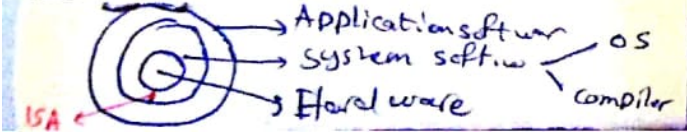 Application softwar
system softw OS
compiler
Hardware
ISA